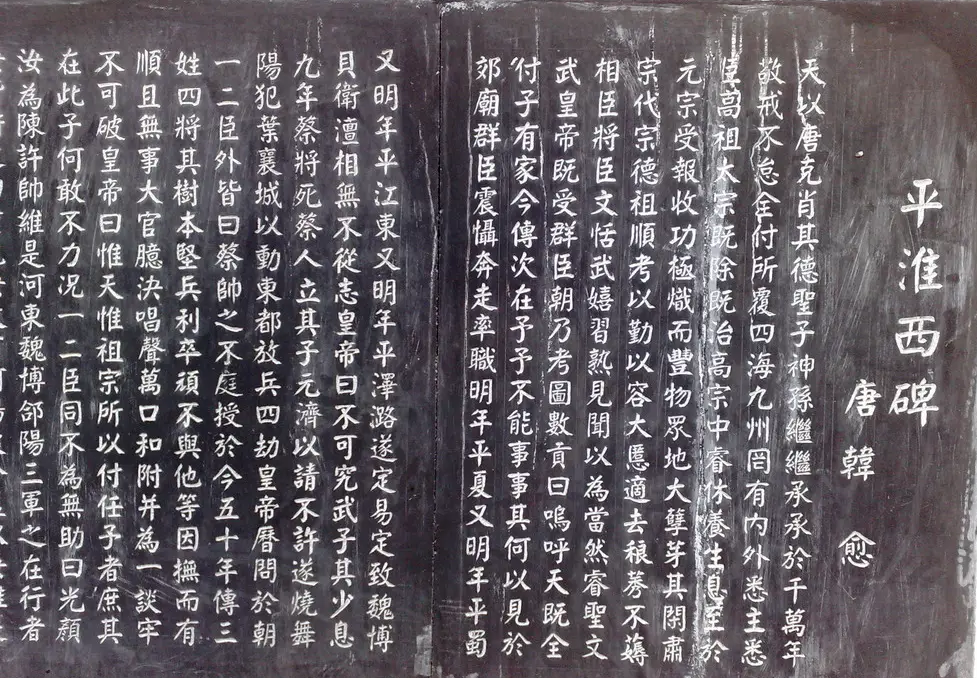 平淮西碑
唐韓愈
天以唐克肖其德聖子神孫繼繼承承於千萬年
敬戒不怠全付所覆四海九州罔有內外悉主悉
臣高祖太宗既除既治高宗中睿休養生息至於
元宗受報收功極熾而豐物眾地大孽芽其間肅
宗代宗德祖順考以勤以容大慝適去稂莠不薅
相臣將臣文恬武嬉習熟見聞以為當然睿聖文
武皇帝既受群臣朝乃考圖數貢曰嗚呼天既全
付予有家今傳次在予予不能事事其何以見於
郊廟群臣震懾奔走率職明年平夏又明年平蜀
又明年平江東又明年平澤潞遂定易定致魏博
貝衛澶相無不從志皇帝曰不可究武予其少息
九年蔡將死蔡人立其子元濟以請不許遂燒舞
陽犯葉襄城以動東都放兵四劫皇帝曆問於朝
一二臣外皆曰蔡帥之不庭授於今五十年傳三
姓四將其樹本堅兵利卒頑不與他等因撫而有
順且無事大官臆決唱聲萬口和附并為一談牢
不可破皇帝曰惟天惟祖宗所以付任予者庶其
在此予何敢不力況一二臣同不為無助曰光顏
汝為陳許帥維是河東魏博郃陽三軍之在行者